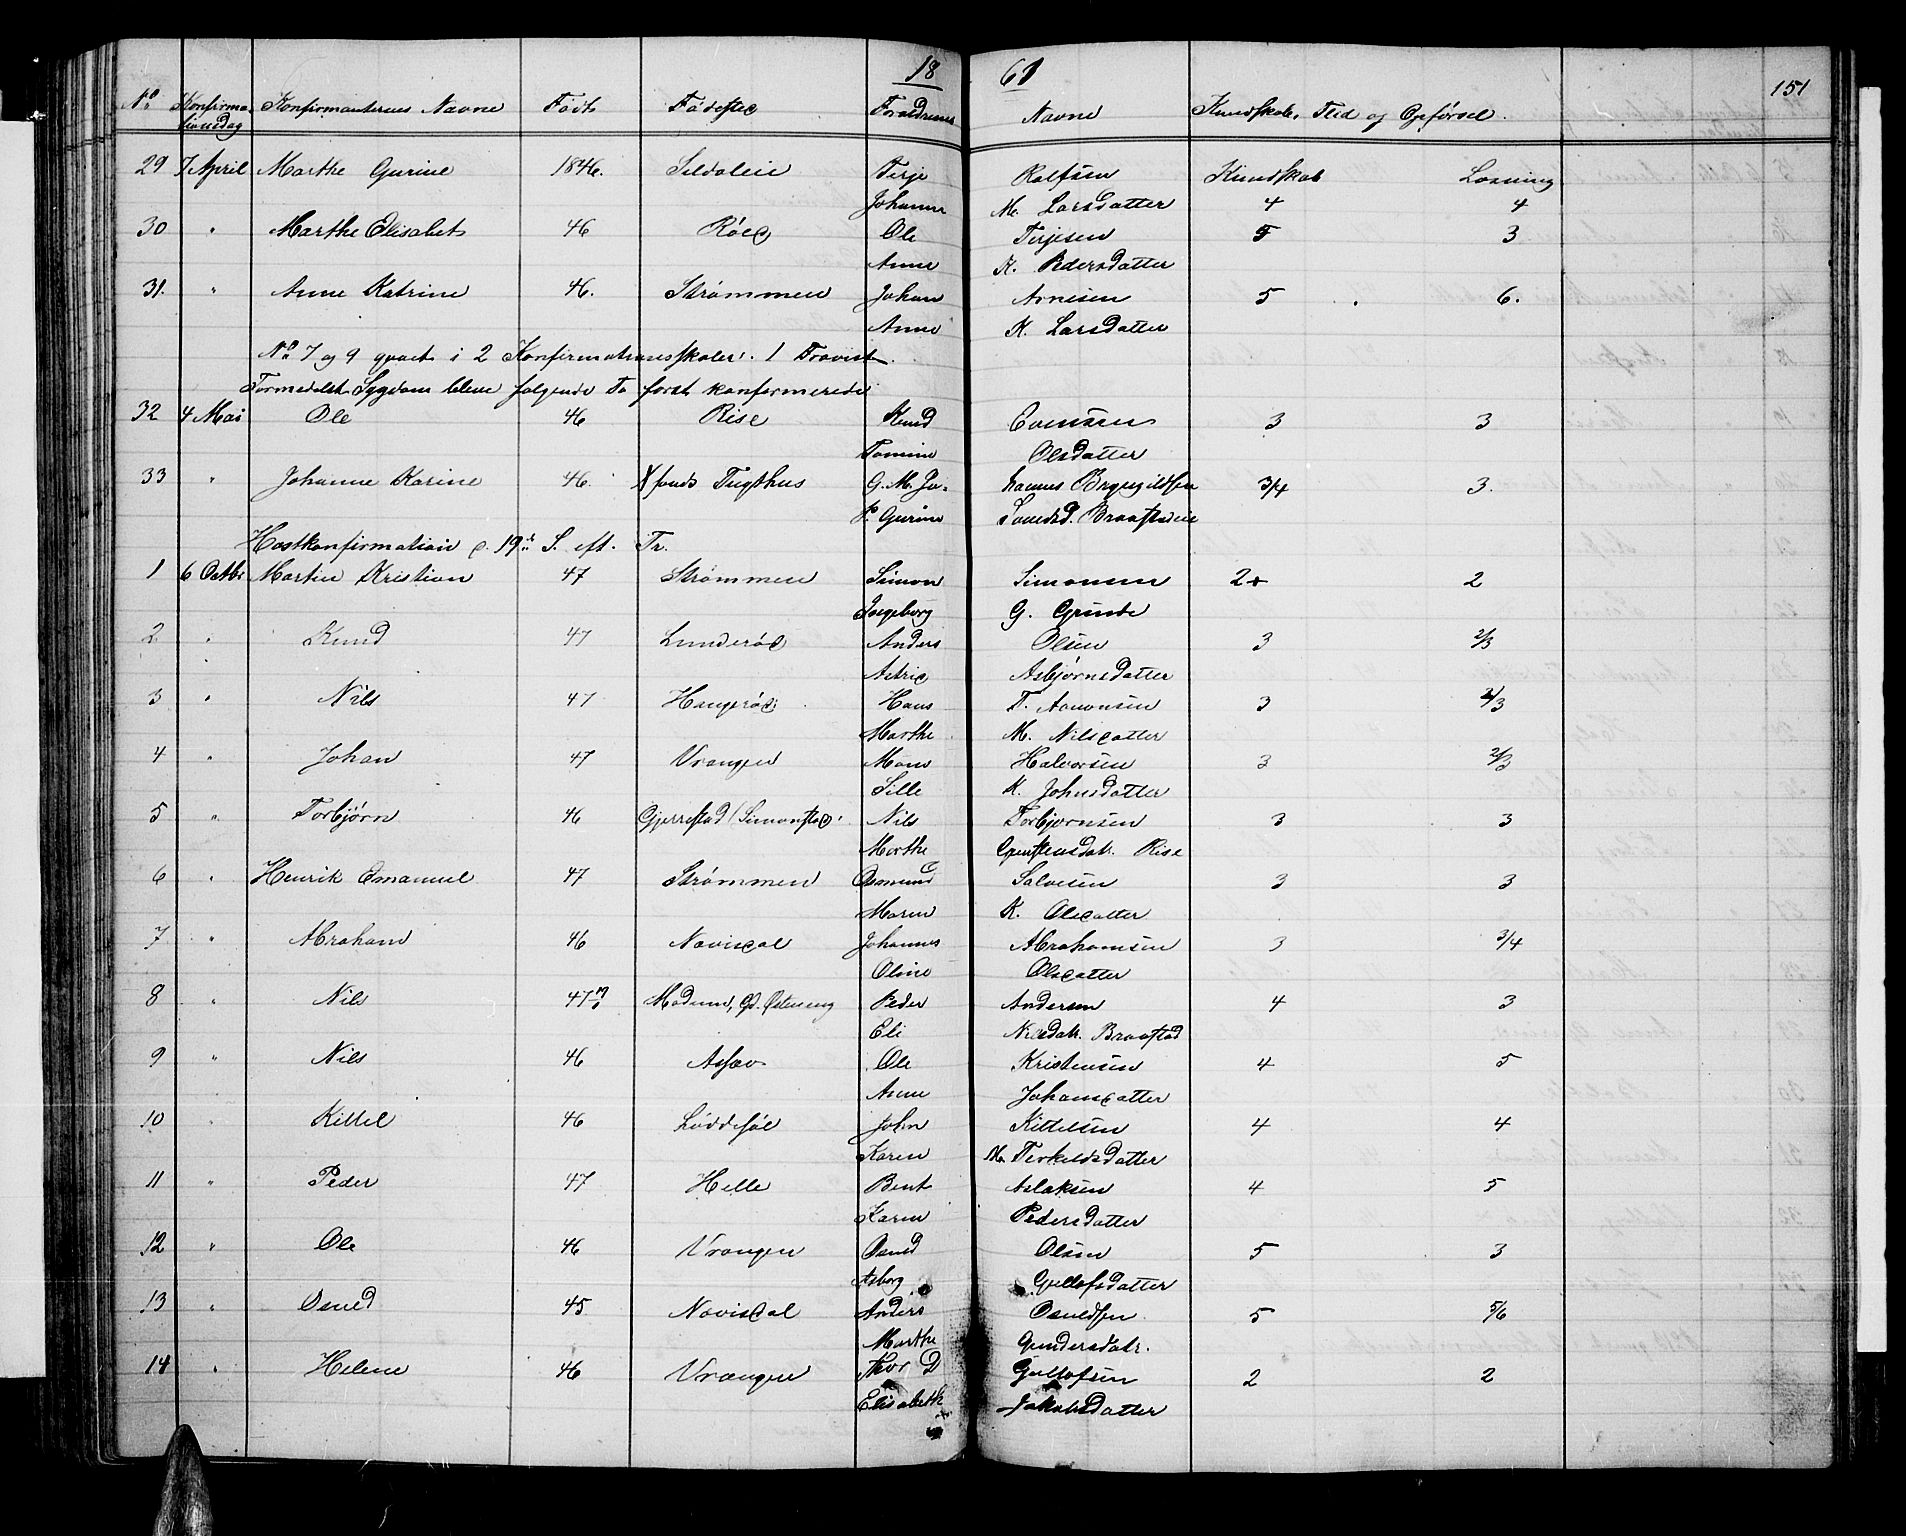 18 61
151
No Konfirmationsdag Konfirmanternes Navne Født Fødested Forældrenes Navne Kundskab, Flid og Opførsel.
29 7 April Marthe Gurine 1846. Sildaleie Terje Rolfsen Kundskab Læsning
Johanne M. Larsdatter 4 4
30 " Marthe Elisabet 46 Røed Ole Terjesen 5 3
Anne K. Pedersdatter
31. " Anne Katrine 46. Strømmen Johan Arnesen 5 6.
Anne K. Larsdatter
No 7 og 9 gaaet i 2 Konfirmationsskoler. 1 Fravist
Formedelst Sygdom bleve følgende to først konfirmerede
32 4 Mai Ole 46 Rise Knud Evensen 3 3
Tomine Olsdatter
33 " Johanne Karine 46. Tugthus G. M. Jo- hannes Bryngildsen 3/4 3.
P. Gurine Braastadeie
Høstkonfirmation d. 19de S. eft. Tr.
1 6 Octbr Martin Kristian 47 Strømmen Simon Simonsen 2+ 2
Ingeborg G. Grunde
2 " Knud 47 Lunderød Anders Olsen 3 2/3
Astrid Asbjørnsdatter
3 " Nils 47 Haugerød Hans T. Aanonsen 3 2/3
Marthe M. Nilsdatter
4 " Johan 47 Vrangen Mons Halvorsen 3 2/3
Sille K. Johnsdatter
5 " Torbjørn 46 Gjerrestad (Simonstad) Nils Torbjørnsen 3 3
Marthe Rise
6 " Henrik Emanuel 47 Strømmen Osmund Salvesen 3 3
Maren K. Olsdatter
7 " Abraham 46 Næviscal Johannes Abrahamsen 3 3/4
Oline Olsdatter
8 " Nils 47 Modum, Gd. Østeseng Peder Andersen 4 3
Eli Nilsdatr. Braastad
9 " Nils 46 Assæv Ole Kristensen 4 5
Anne Johansdatter
10 " Kittel 46 Løddesøl John Kittelsen 4 4
Karen M. Terkeldsdatter
11 " Peder 47 Helle Bent Aslaksen 4 5
Karen Pedersdatter
12 " Ole 46 Vrangen Osuld Olsen 5 3
Asborg Gullofsdatter
13 " Osuld 45 Næviscal Anders Osuldsen 5 5/6
Marthe Gundersdatr.
14 " Helene 46 Vrangen Thor D Gullofsen 2 2
Elisabeth Jakobsdatter